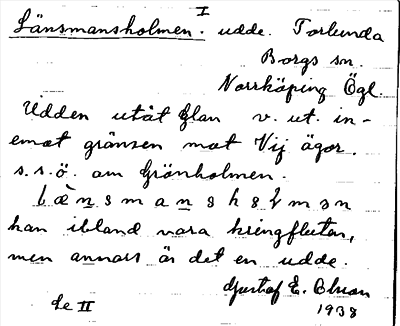 I
Länsmansholmen. udde. Torlunda
Borgs sn.
Norrköping Ögl.
Udden utåt Glan v. ut. in-
emot gränsen mot Vij ägor.
s.s.ö. om Grönholmen.
lænsmanshɵlmən
kan ibland vara kringfluten,
men annars är det en udde.
Gustaf E.
1938
Se II